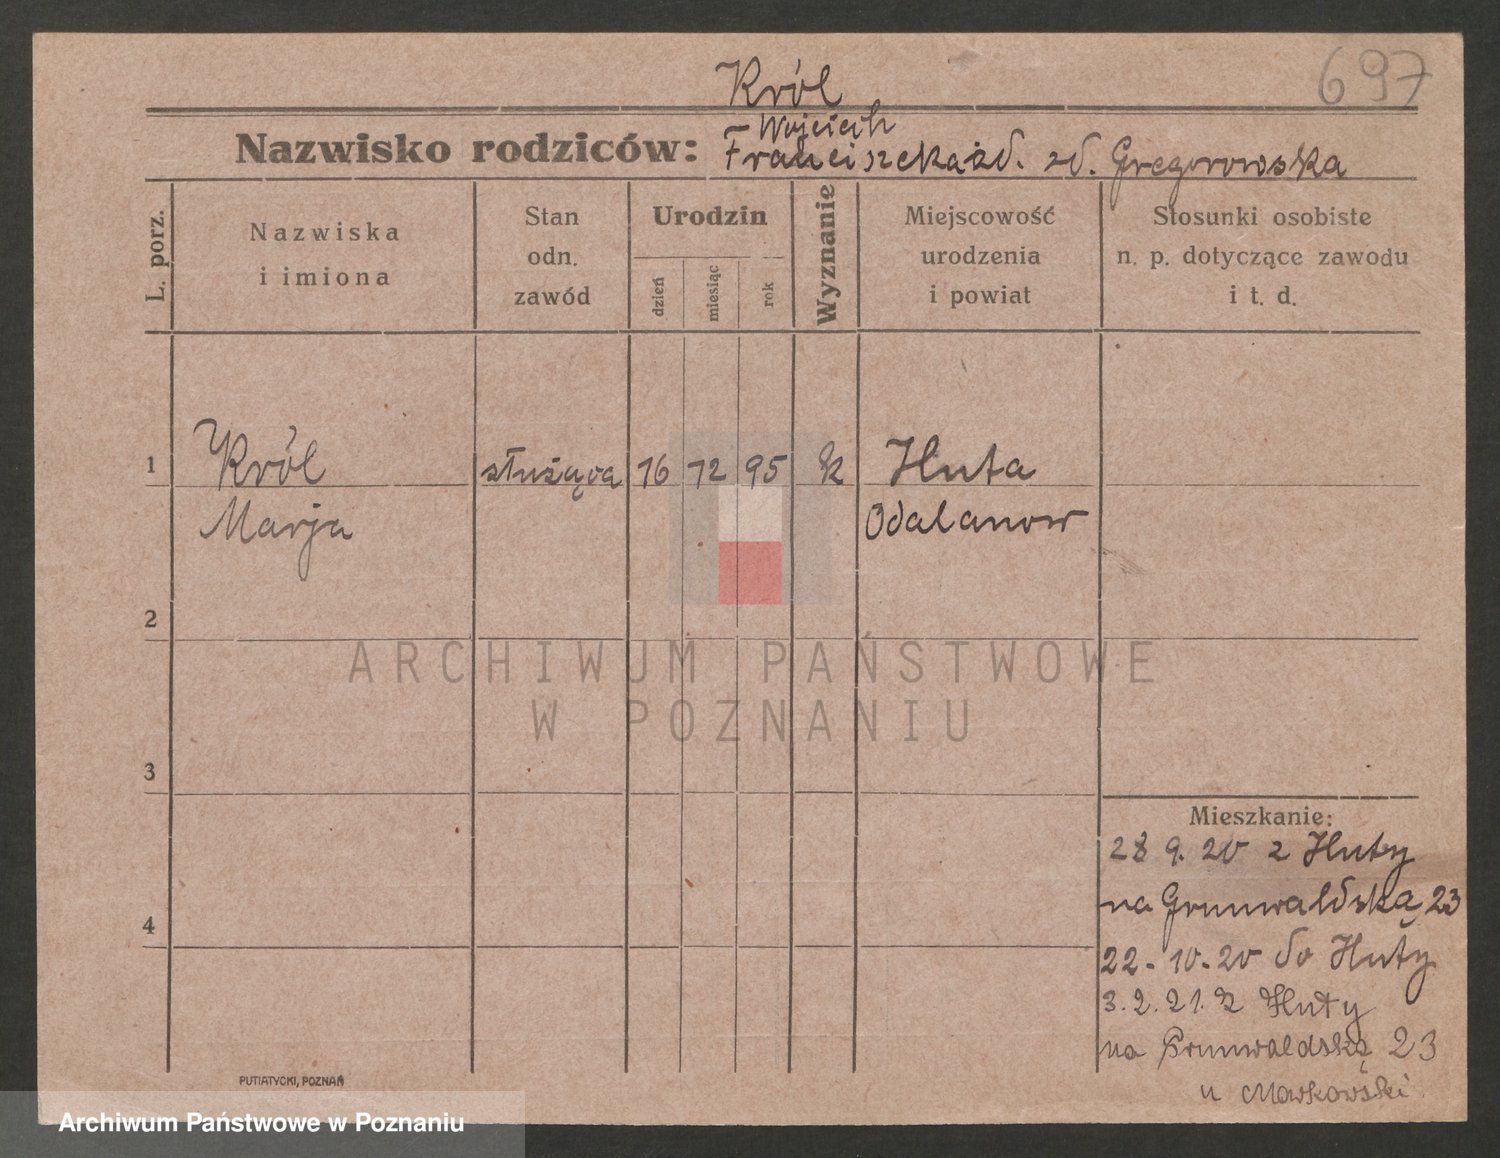 697
Król
Wojciech
Nazwisko rodziców: Franciszka zd. Gregorowska
L. porz.
Nazwiska
i imiona
Stan
odn.
zawód
Urodzin
dzień
miesiąc
rok
Wyznanie
Miejscowość
urodzenia
i powiat
Stosunki osobiste
n. p. dotyczące zawodu
i t. d.
1 Król służąca 16 12 95 k Huta
Marja Odalanow
2
ARCHIWUM PAŃSTWOWE
W POZNANIU
3
Mieszkanie:
28 9. 20 z Huty
na Grunwaldską 23
4
22-10-20 do Huty
3.2.21. z Huty
na Grunwaldską 23
u Markowski
PUTIATYCKI, POZNAŃ
Archiwum Państwowe w Poznaniu